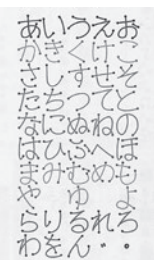 あいうえお
かきくけこ
さしすせそ
たちつてと
なにぬねの
はひふへほ
まみむめも
や ゆ よ
らりるれろ
わをん゛゜